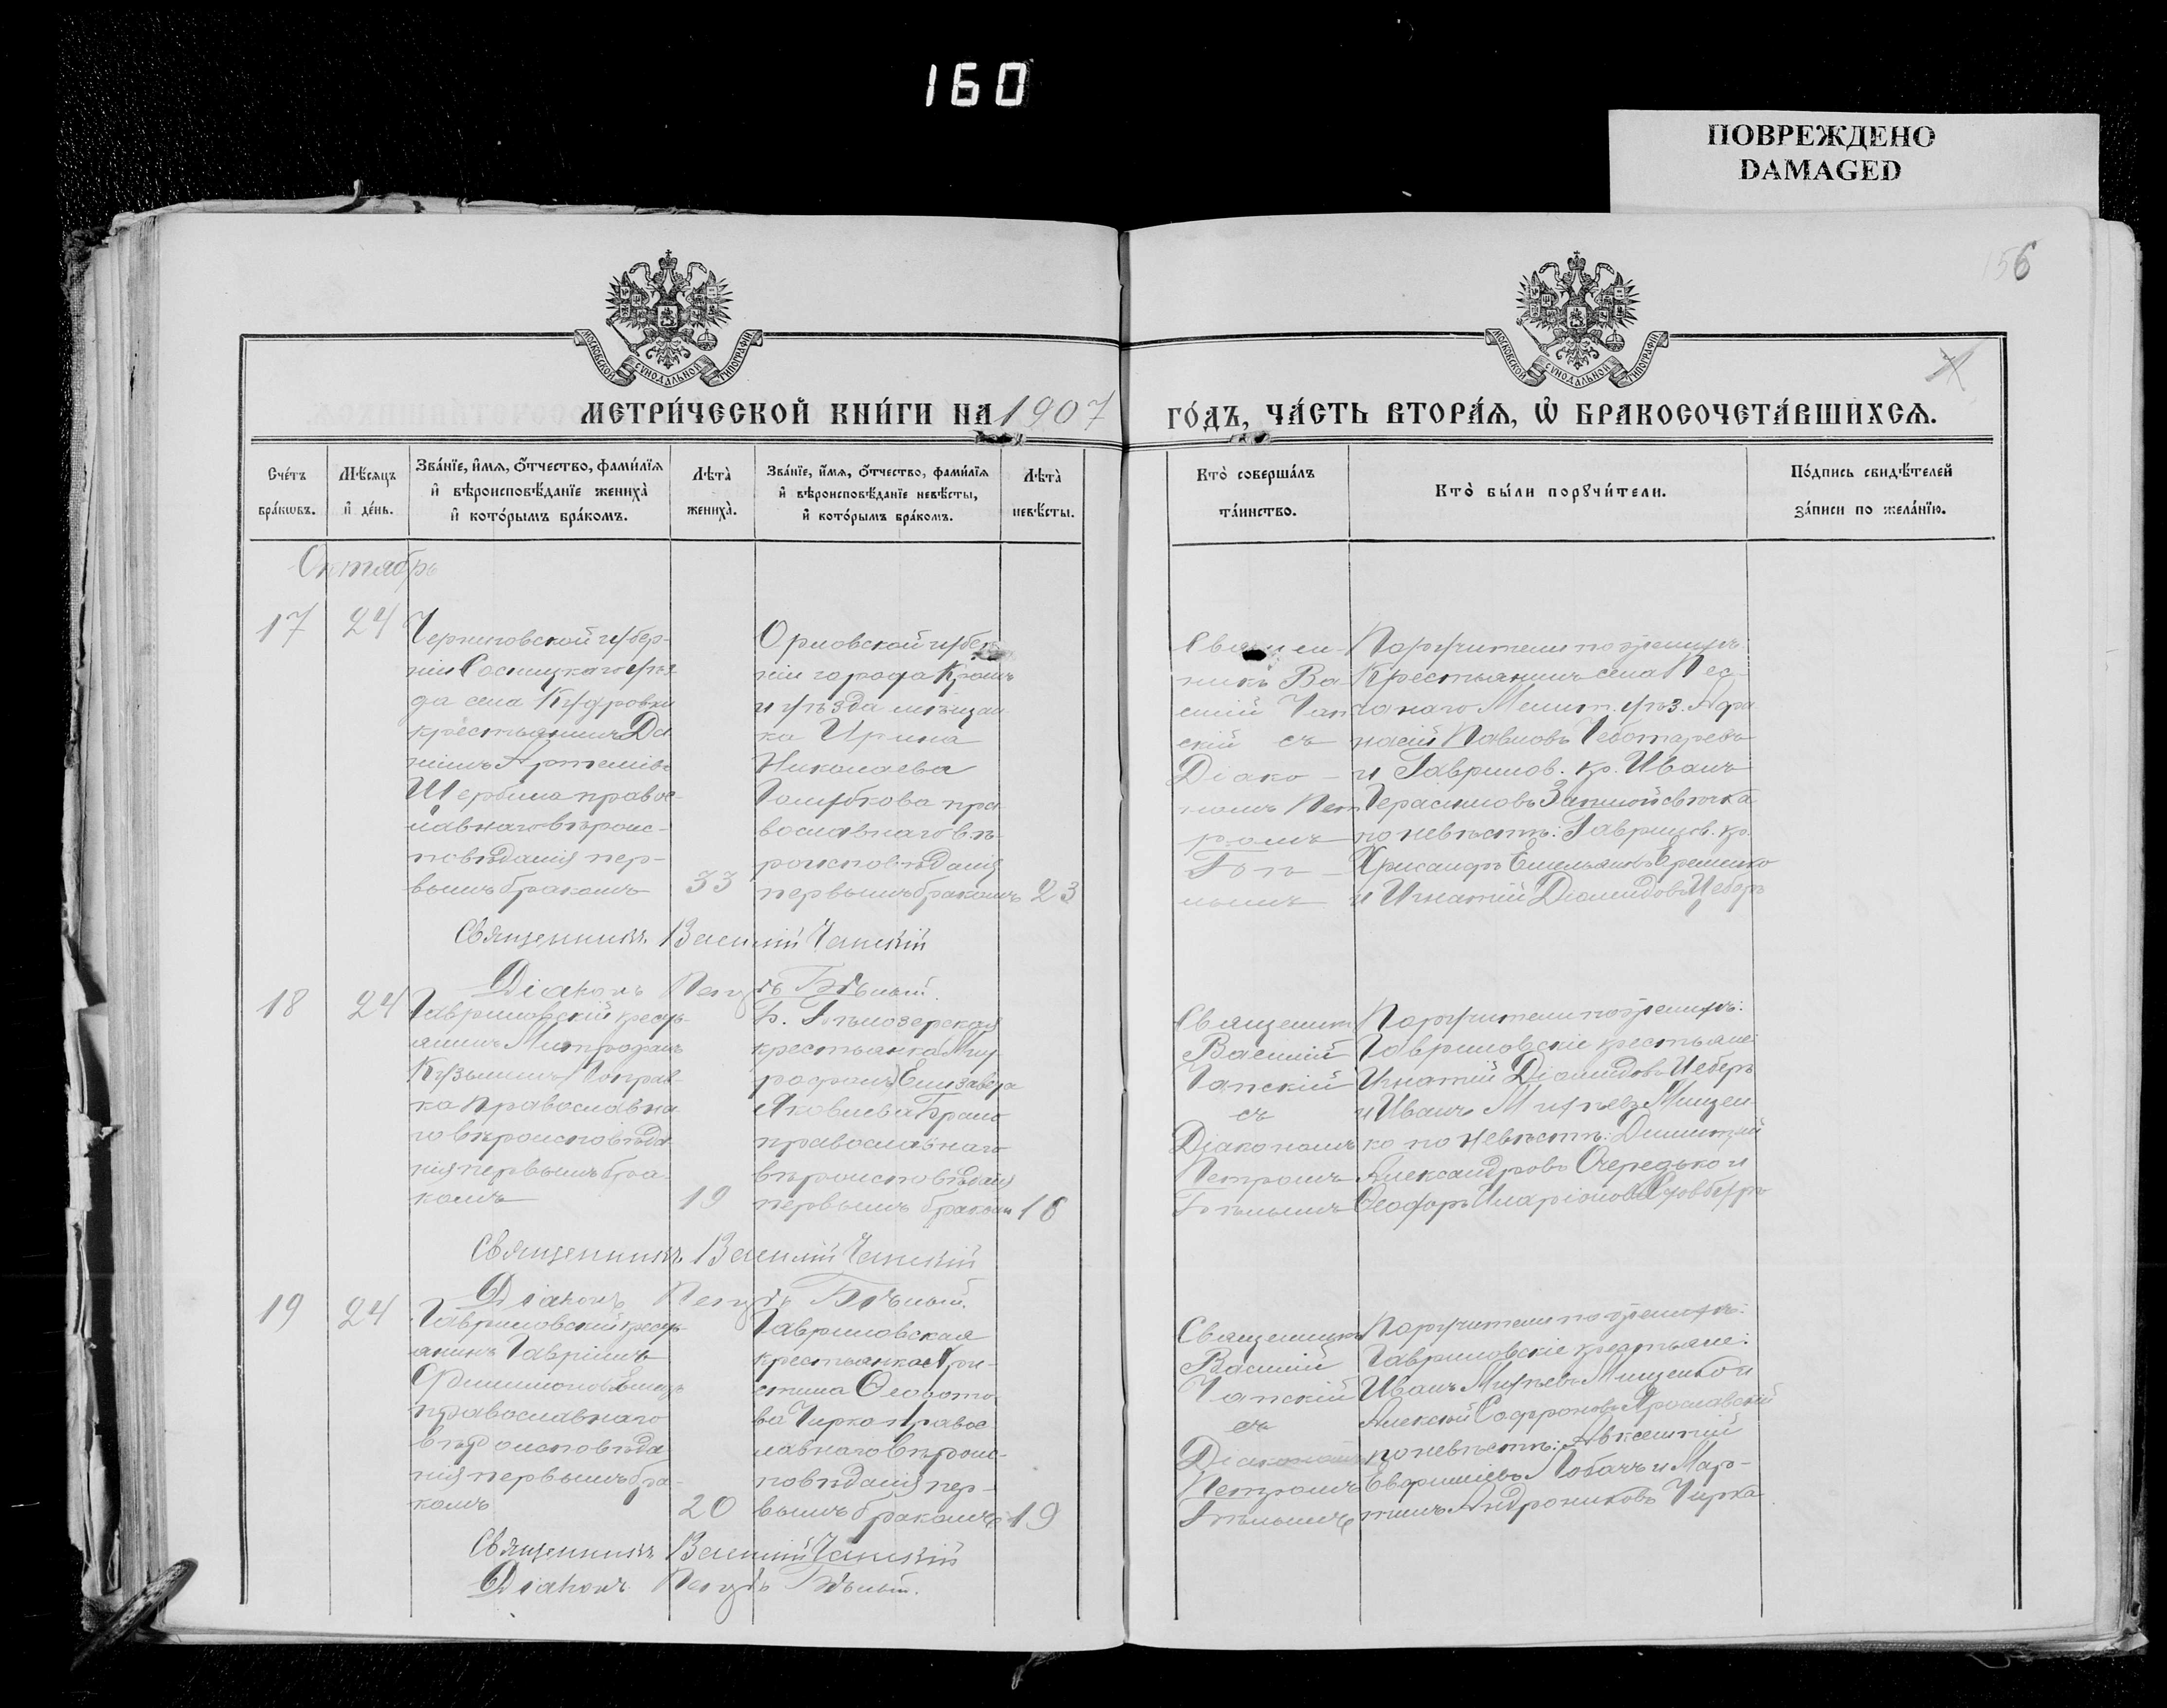 160
ПОВРЕЖДЕНО
DAMAGED
156
МОСКОВСКОЙ СѴНОДАЛЬНОЙ ТИПОГРАФІИ
МОСКОВСКОЙ СѴНОДАЛЬНОЙ ТИПОГРАФІИ
МЕТРИ́ЧЕСКОЙ КНИ́ГИ НА 1907
ГО́ДЪ, ЧА́СТЬ ВТОРА́Ѧ, Ѡ БРАКОСОЧЕТА́ВШИХСѦ.
Сче́тъ бра́кѡвъ.
Мѣ́сяцъ и де́нь.
Зва́нїе, и́мѧ, ѻ́тчество, фами́лїѧ
и вѣроисповѣ́данїе жениха̀
и кото́рымъ бра́комъ.
Лѣта̀ жениха̀.
Зва́нїе, и́мѧ, ѻ́тчество, фами́лїѧ
и вѣроисповѣ́данїе невѣ́сты,
и кото́рымъ бра́комъ.
Лѣта̀ невѣ́сты.
Кто̀ соверша́лъ
та́инство.
Кто̀ бы́ли порꙋчи́тели.
По́дпись свидѣ́телей
за́писи по жела́нїю.
Октябрь
17
24
Черниговской губер-
ніи Сосницкаго уѣз
да села Кудровки
крестьянинъ Да
ніилъ Артеміевъ
Щербина правос-
лавнаго вѣроис-
повѣданія пер-
вымъ бракомъ
33
Орловской губер
ніи города Кромъ
и уѣзда мѣщан
ка Ирина
Николаева
Голубкова пра
вославнаго вѣ
роисповѣданія
первымъ бракомъ
23
Священ-
никъ Ва
силій Чап
скій съ
Діако-
номъ Пет
ромъ
Бѣ-
лымъ
Поручители по женихѣ:
Крестьянинъ села Пес
чанаго Мелит. уѣз. Афа
насій Павловъ Чеботаревъ
и Гаврилов. кр. Иванъ
Герасимовъ
по невѣстѣ: Гаврилов. кр.
Хрисанфъ Емельяновъ Еременко
и Игнатій Діомидовъ Цеберъ
Священникъ Василій Чапскій
Діаконъ Петръ Бѣлый.
18
24
Гавриловскій кресть-
янинъ Митрофанъ
Кузьминъ
Православна
го вѣроисповѣда
нія первымъ бра
комъ
19
Б. Бѣлозерская
крестьянка
Елизавета
Яковлева
православнаго
вѣроисповѣданія
первымъ бракомъ
18
Священникъ
Василій
Чапскій
съ
Діакономъ
Петромъ
Бѣлымъ
Поручители по женихѣ:
Гавриловскіе крестьяне:
Игнатій Діомидовъ Цеберъ
и Иванъ Мищен-
ко по невѣстѣ: Димитрій
Александровъ Очередько и
Ѳеодоръ Иларіоновъ
Священникъ Василій Чапскій
Діаконъ Петръ Бѣлый.
19
24
Гавриловскій кресть-
янинъ Гавріилъ
Филимоновъ
православнаго
вѣроисповѣда
нія первымъ бра-
комъ
20
Гавриловская
крестьянка Хри-
стина
Чирка Правос
лавнаго вѣроис-
повѣданія пер-
вымъ бракомъ
19
Священникъ
Василій
Чапскій
съ
Діакономъ
Петромъ
Бѣлымъ
Поручители по женихѣ:
Гавриловскіе крестьяне:
Иванъ Мищенко и
Алексій Софроновъ Ярославскій
по невѣстѣ: Авксентій
Лобачъ и Мар-
тинъ Андрониковъ Чирка
Священникъ Василій Чапскій
Діаконъ Петръ Бѣлый.